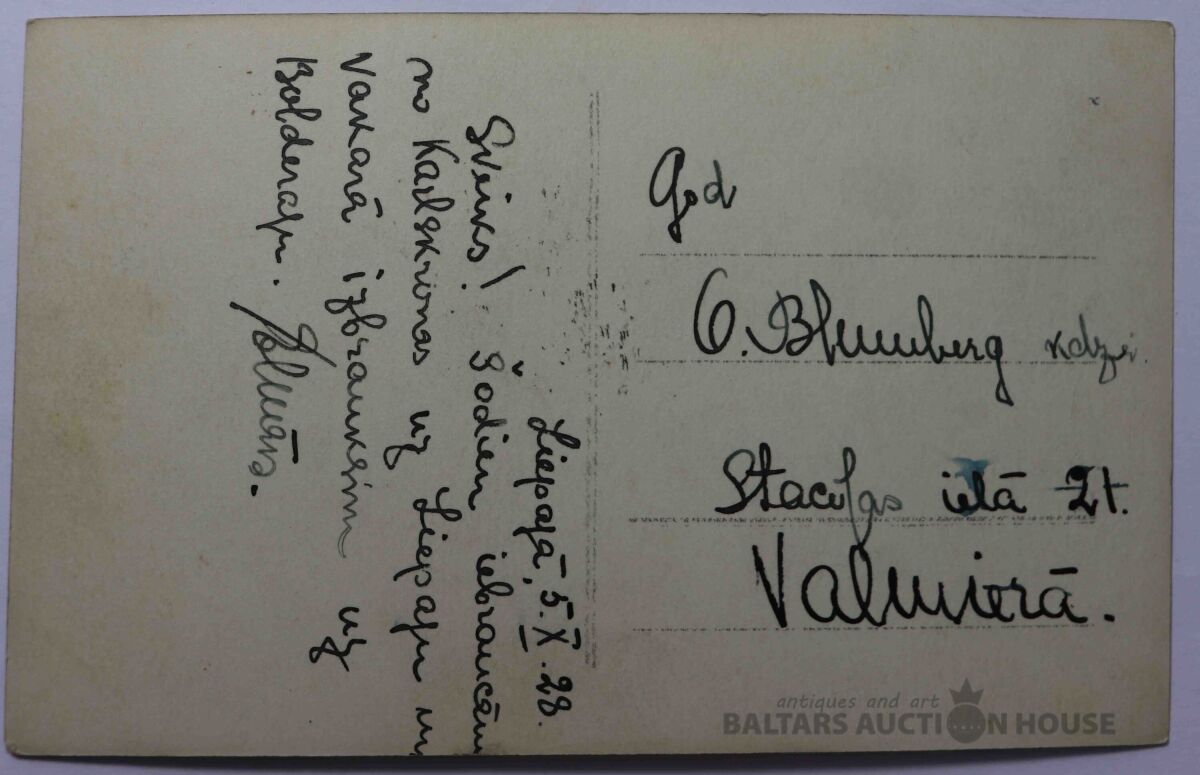 Liepajā, 5.X.28.
Sveiks! Šodien iebraucām
no Karlskronas uz Liepaju un
vakarā izbrauksim uz
Bolderaju.
God
O. Blumberg kdze
Stacijas ielā 21.
Valmierā.
antiques and art
BALTARS AUCTION HOUSE